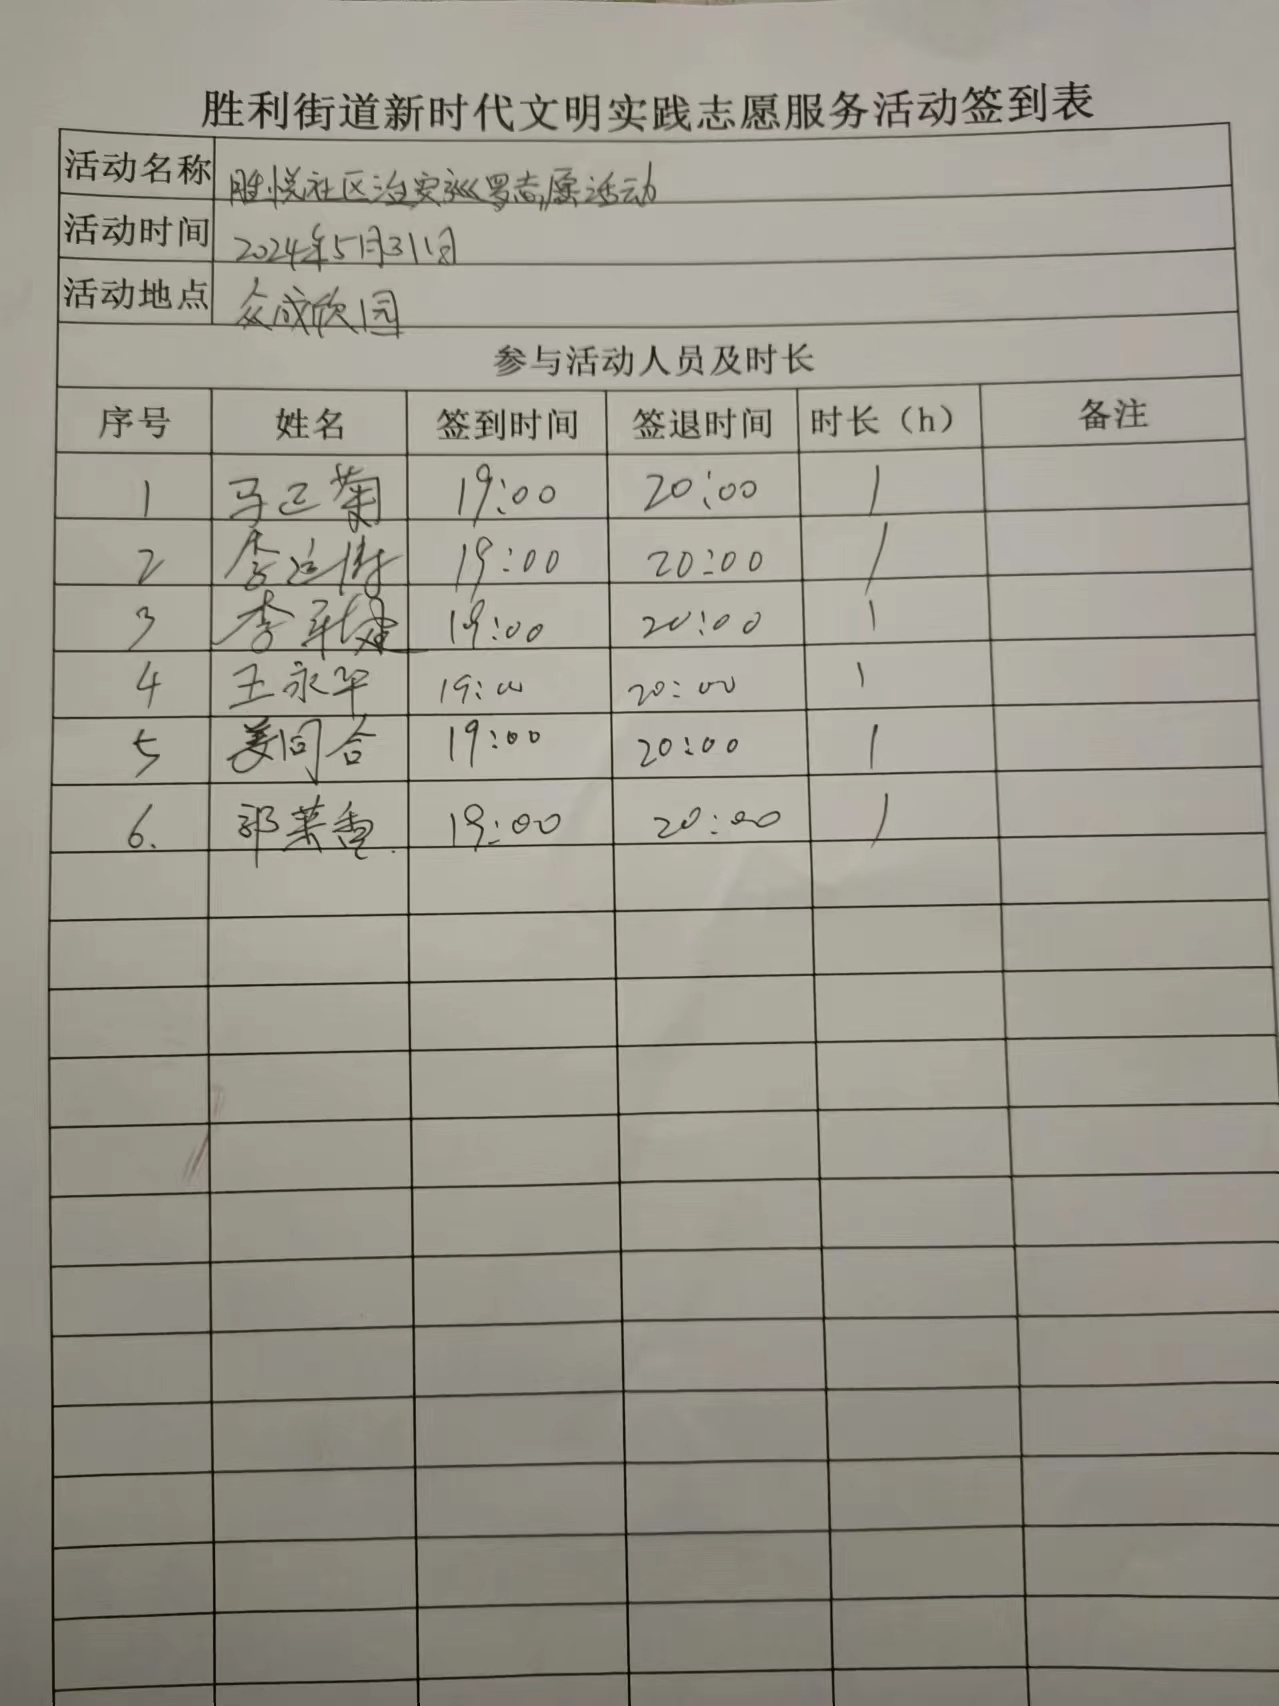 胜利街道新时代文明实践志愿服务活动签到表
活动名称 胜悦社区治安巡罗志愿活动
活动时间 2024年5月31日
活动地点 众成欣园
参与活动人员及时长
序号 姓名 签到时间 签退时间 时长（h） 备注
1 马正菊 19:00 20:00 1
2 李 19:00 20:00 1
3 李 19:00 20:00 1
4 王永华 19:00 20:00 1
5 姜同合 19:00 20:00 1
6. 郭莱香 19:00 20:00 1